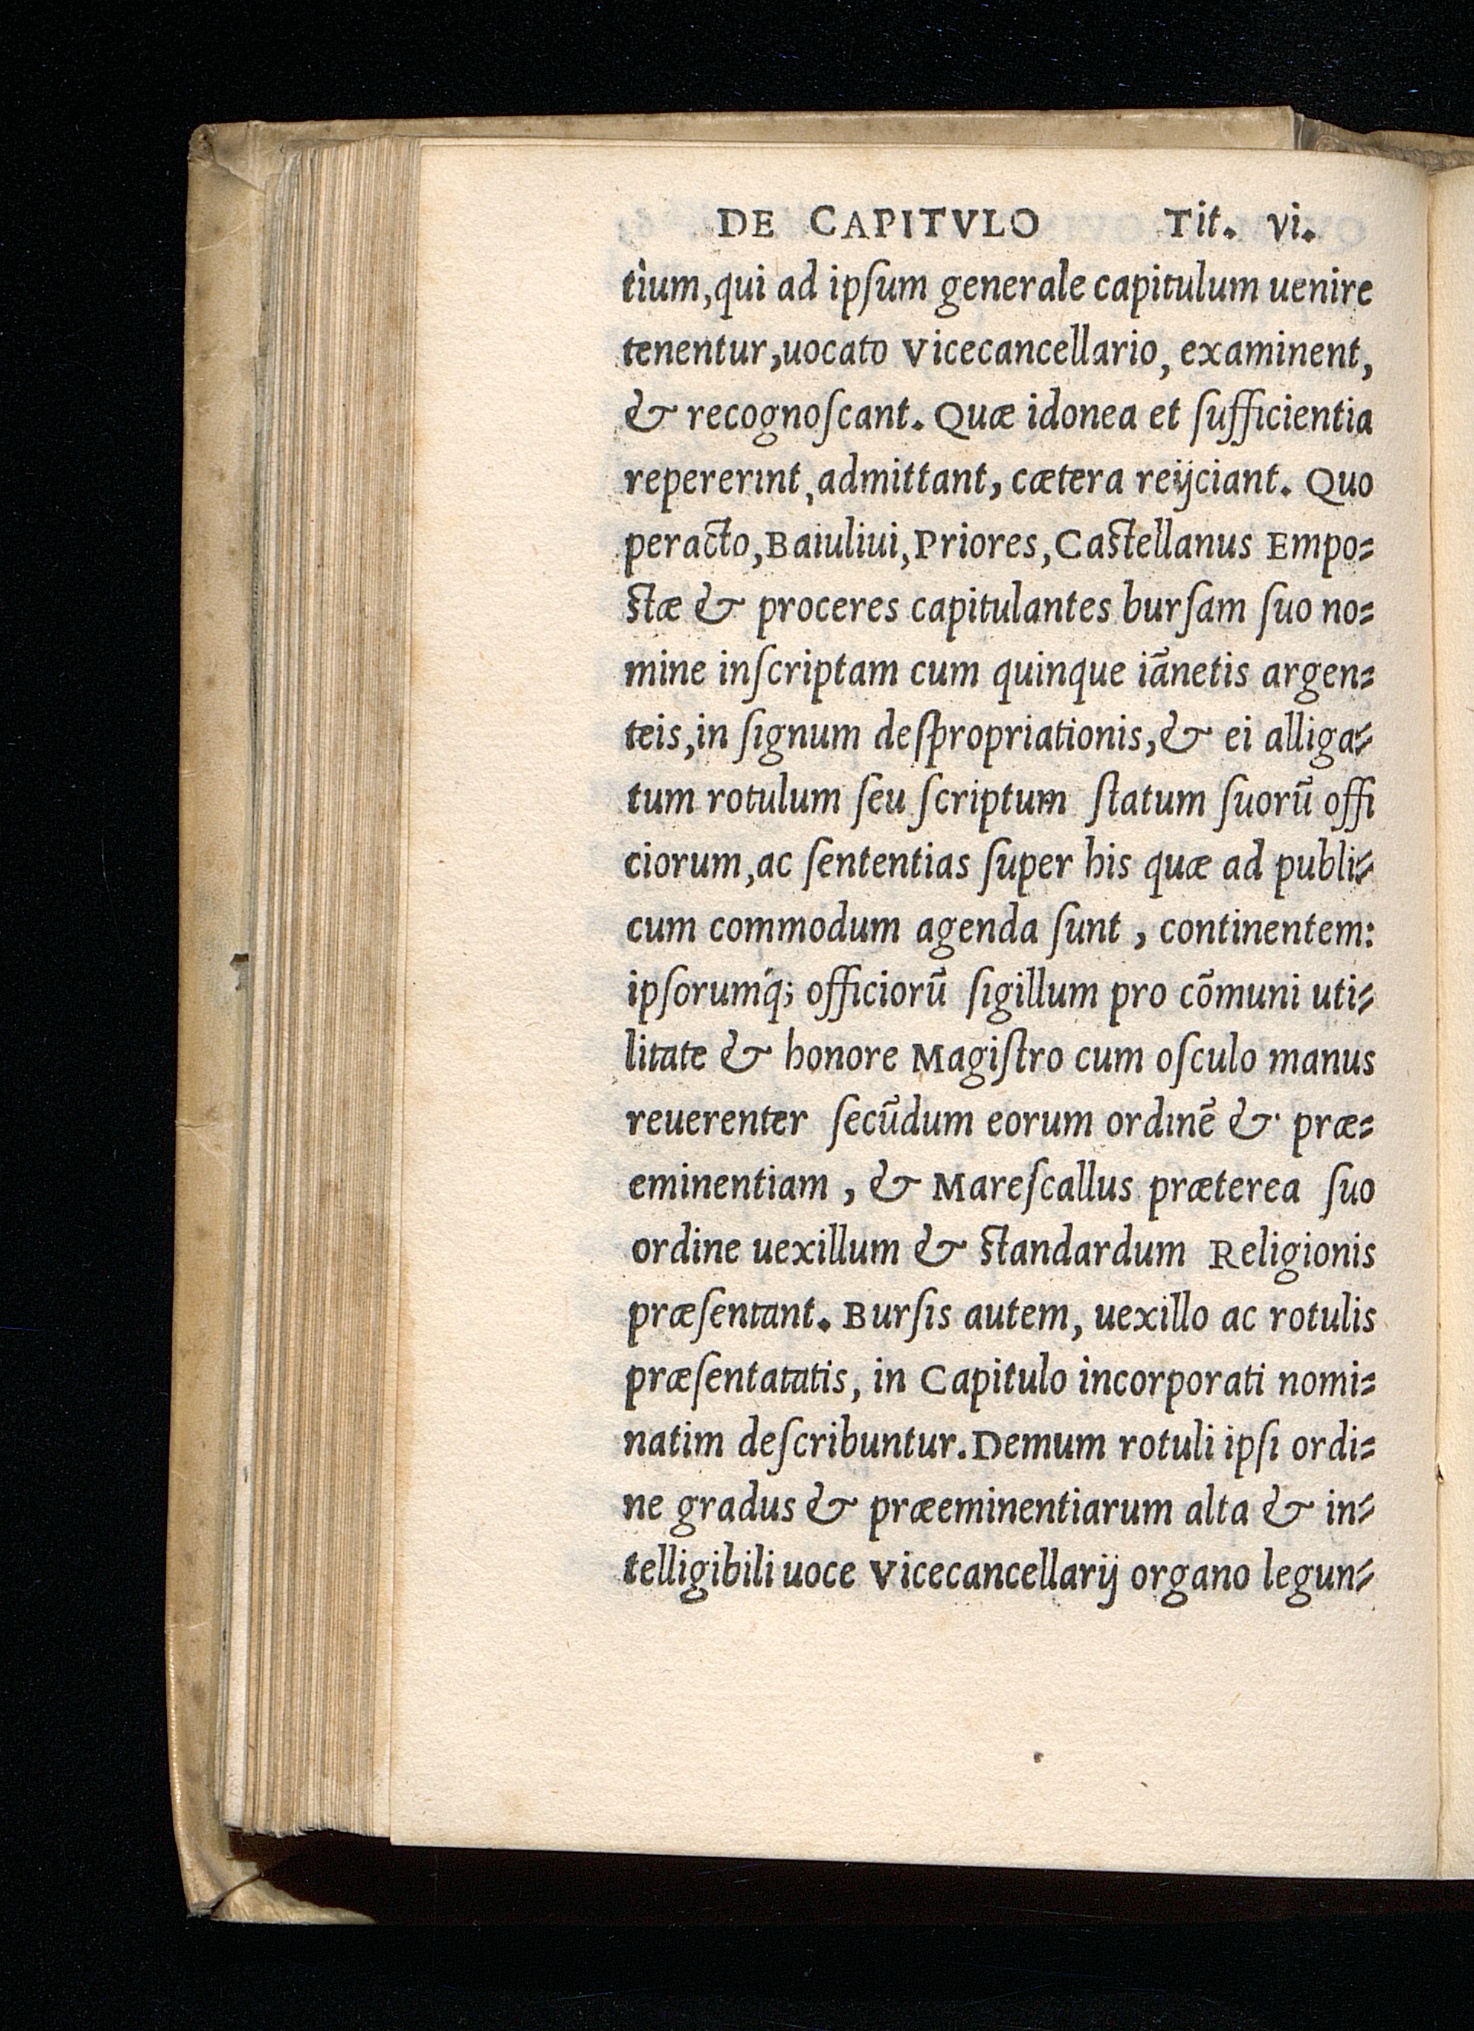 DE CAPITVLO Tit. vi.
tium, qui ad ipſum generale capitulum uenire
tenentur, uocato Vicecancellario, examinent,
& recognoſcant. Quæ idonea et ſufficientia
repererint, admittant, cætera reijciant. Quo
peracto, Baiuliui, Priores, Caſtellanus Empo=
ſtæ & proceres capitulantes burſam ſuo no=
mine inſcriptam cum quinque iānetis argen=
teis, in ſignum deſpropriationis, & ei alliga=
tum rotulum ſeu ſcriptum ſtatum ſuorū offi
ciorum, ac ſententias ſuper his quæ ad publi=
cum commodum agenda ſunt, continentem:
ipſorumq́; officiorū ſigillum pro cōmuni uti=
litate & honore Magiſtro cum oſculo manus
reuerenter ſecūdum eorum ordinē & præ=
eminentiam, & Mareſcallus præterea ſuo
ordine uexillum & ſtandardum Religionis
præſentant. Burſis autem, uexillo ac rotulis
præſentatatis, in Capitulo incorporati nomi=
natim deſcribuntur. Demum rotuli ipſi ordi=
ne gradus & præeminentiarum alta & in=
telligibili uoce Vicecancellarij organo legun=